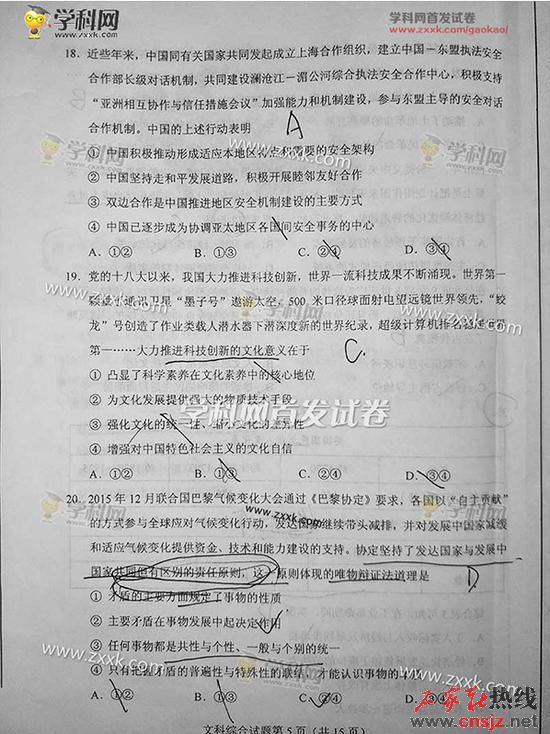 学科网
学科网首发试卷
www.zxxk.com/gaokao/
18. 近些年来，中国同有关国家共同发起成立上海合作组织，建立中国－东盟执法安全
合作部长级对话机制，共同建设澜沧江－湄公河综合执法安全合作中心，积极支持
“亚洲相互协作与信任措施会议”加强能力和机制建设，参与东盟主导的安全对话
合作机制。中国的上述行动表明
A
① 中国积极推动形成适应本地区特点和需要的安全架构
② 中国坚持走和平发展道路，积极开展睦邻友好合作
③ 双边合作是中国推进地区安全机制建设的主要方式
④ 中国已逐步成为协调亚太地区各国间安全事务的中心
A. ①② B. ①③ C. ②④ D. ③④
19. 党的十八大以来，我国大力推进科技创新，世界一流科技成果不断涌现。世界第一
颗量子通讯卫星“墨子号”遨游太空，500 米口径球面射电望远镜世界领先，“蛟
龙”号创造了作业类载人潜水器下潜深度新的世界纪录，超级计算机排名稳居世界
第一……大力推进科技创新的文化意义在于
C.
① 凸显了科学素养在文化素养中的核心地位
② 为文化发展提供强大的物质技术手段
③ 强化文化的统一性、缩小文化的差异性
④ 增强对中国特色社会主义的文化自信
A. ①② B. ①③ C. ②④ D. ③④
20. 2015 年 12 月联合国巴黎气候变化大会通过《巴黎协定》要求，各国以“自主贡献”
的方式参与全球应对气候变化行动，发达国家继续带头减排，并对发展中国家减缓
和适应气候变化提供资金、技术和能力建设的支持。协定坚持了发达国家与发展中
国家共同但有区别的责任原则，这一原则体现的唯物辩证法道理是
D
① 矛盾的主要方面规定了事物的性质
② 主要矛盾在事物发展中起决定作用
③ 任何事物都是共性与个性、一般与个别的统一
④ 只有把握矛盾的普遍性与特殊性的联结，才能认识事物的
A. ①② B. ①③ C. ②④ D. ③④
文科综合试题第 5 页（共 15 页）
学科网首发试卷
www.zxxk.com
石家庄热线
www.cnsjz.net